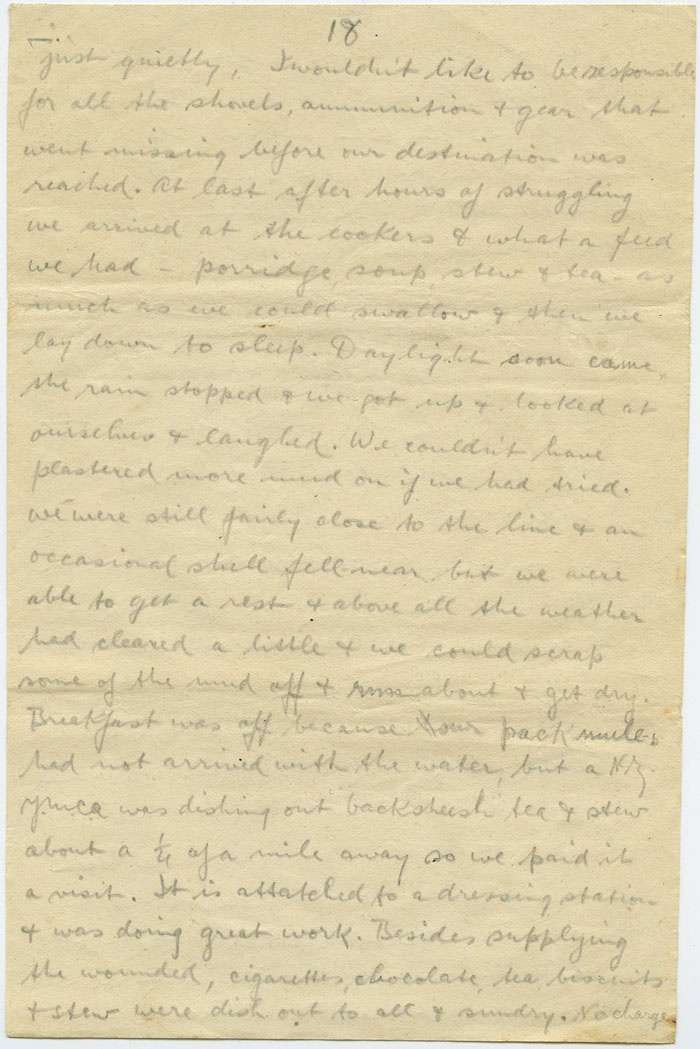 18
just quietly, I wouldn't like to be responsible
for all the shovels, ammunition & gear that
went missing before our destination was
reached. At last after hours of struggling
we arrived at the cookers & what a feed
we had - porridge, soup, stew & tea - as
much as we could swallow & then we
lay down to sleep. Daylight soon came,
the rain stopped & we got up & looked at
ourselves & laughed. We couldn't have
plastered more mud on if we had tried.
We were still fairly close to the line & an
occasional shell fell near but we were
able to get a rest & above all the weather
had cleared a little & we could scrap
some of the mud off & run about & get dry.
Breakfast was off because our pack mules
had not arrived with the water, but a N.Z.
Ymca was dishing out backsheesh tea & stew
about a ¼ of a mile away so we paid it
a visit. It is attatched to a dressing station
& was doing great work. Besides supplying
the wounded, cigarettes, chocolate, tea, biscuits
& stew were dish out to all & sundry. No charge